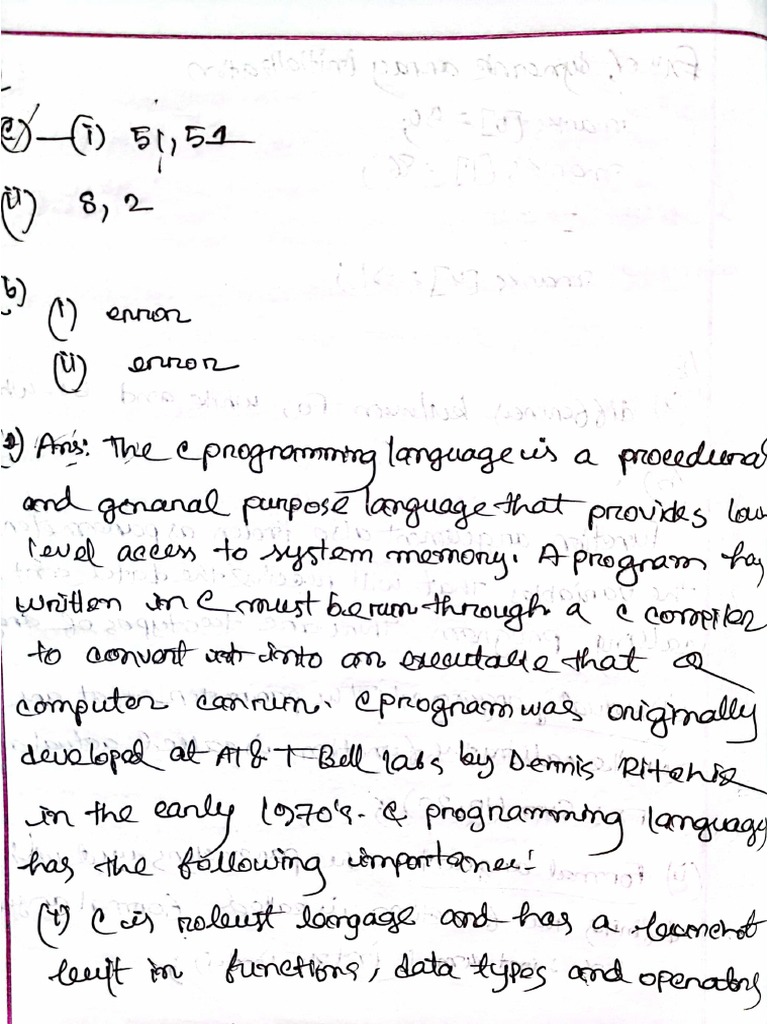 a) (i) 51, 51
(ii) 8, 2
b)
(i) error
(ii) error
Ans: The C programming language is a procedural
and genaral purpose language that provides low
level access to system memory. A program has
written in C must be run through a C compiler
to convert it into an executable that a
computer can run. C program was originally
developed at AT & T Bell labs by Dennis Ritchie
in the early 1970's. C programming language
has the following importance:
(i) C is robust langage and has a
built in functions, data types and operators